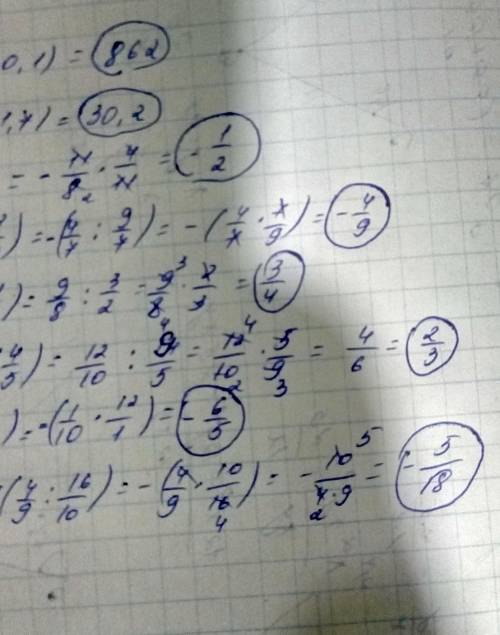 0,1) = 862
1,7) = 30,2
= - 11/8 2 · 4/11 = - 1/2
) = -(4/7 : 9/7) = -(4/7 · 7/9) = - 4/9
) = 9/8 : 3/2 = 9 3/8 · 2/3 = 3/4
4/5) = 12/10 : 9/5 = 12 4/10 2 · 5/9 3 = 4/6 = 2/3
) = -(1/10 · 12/1) = - 6/5
(4/9 : 16/10) = -(4/9 · 10/16 4) = - 10 5/4 2 · 9 = - 5/18